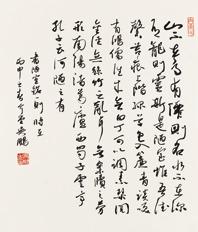 山不在高有僊則名水不在深
有龍則靈斯是陋室惟吾德
馨苔痕上階綠草色入簾青談笑
有鴻儒往來無白丁可以調素琴閱
金經無絲竹之亂耳無案牘之勞
形南陽諸葛廬西蜀子雲亭
孔子云何陋之有
書陋室銘一則時在
丙申